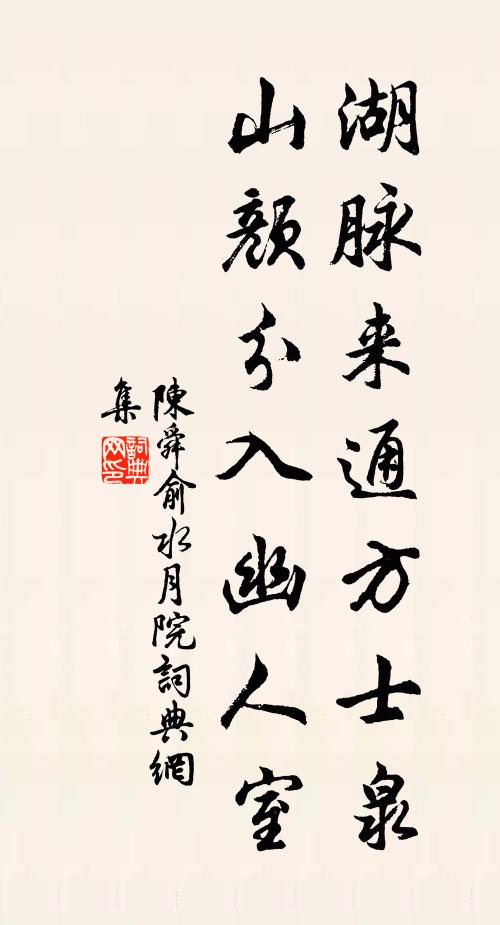 湖脉来通方士泉
山颜分入幽人室
陳舜俞水月院詞典網
集
詞典网印